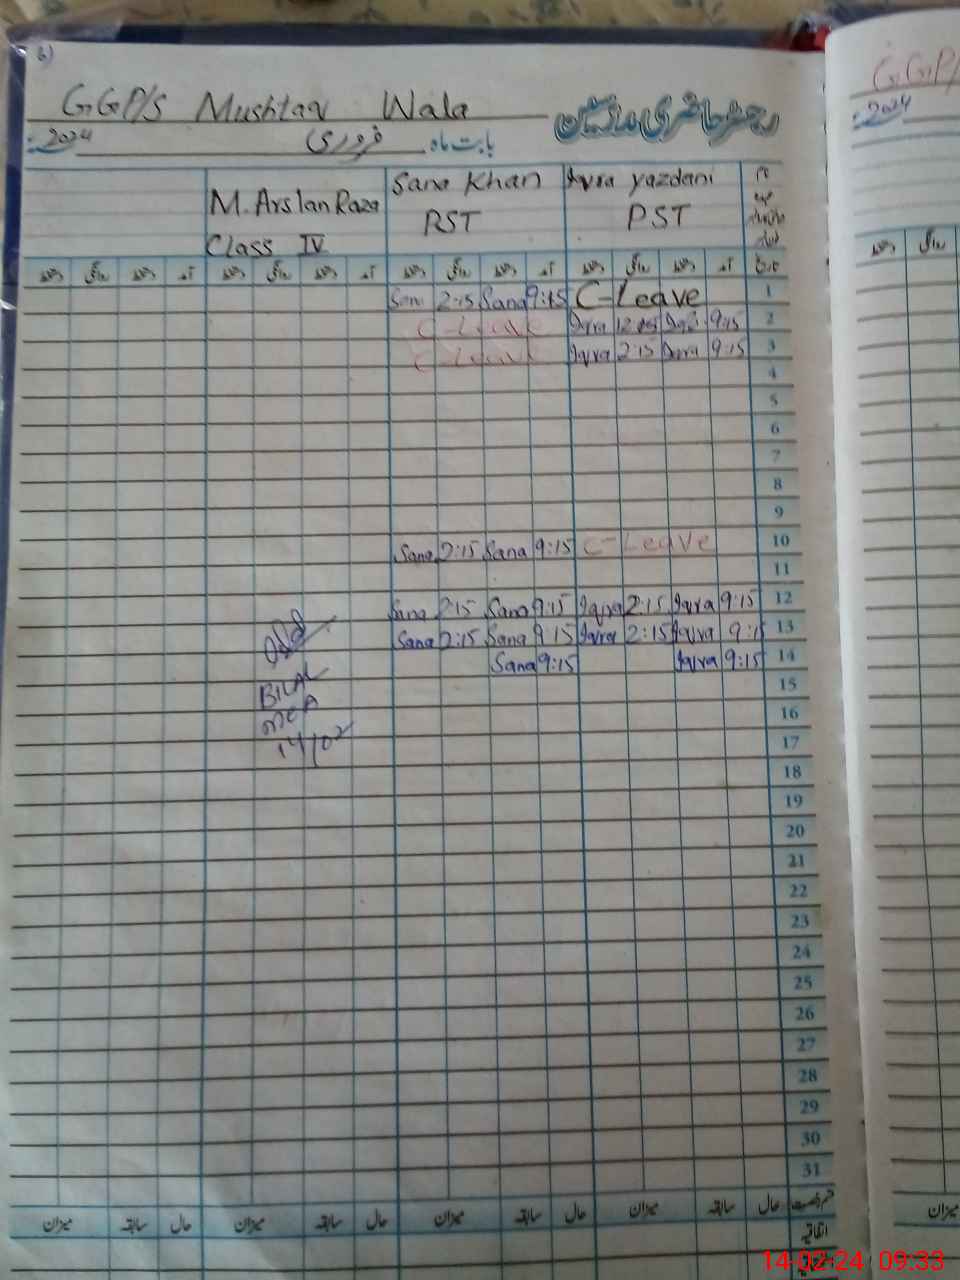 6)
GGP/S Mushtaq Wala
رجسٹر حاضری مدرسین
بابت ماہ فروری 2024
M. Arslan Raza Class IV
Sana Khan PST
Iqra Yazdani PST
نام
تاریخ
آمد دستخط روانگی دستخط آمد دستخط روانگی دستخط آمد دستخط روانگی دستخط آمد دستخط روانگی دستخط
Sana 2:15 Sana 9:15 C-Leave 1
C-Leave Iqra 12:15 Iqra 9:15 2
C-Leave Iqra 2:15 Iqra 9:15 3
4
5
6
7
8
9
Sana 2:15 Sana 9:15 C-Leave 10
11
Sana 2:15 Sana 9:15 Iqra 2:15 Iqra 9:15 12
Sana 2:15 Sana 9:15 Iqra 2:15 Iqra 9:15 13
Sana 9:15 Iqra 9:15 14
BILAL
MEA
14/02
15
16
17
18
19
20
21
22
23
24
25
26
27
28
29
30
31
قسم رخصت حال سابقہ میزان حال سابقہ میزان حال سابقہ میزان حال سابقہ میزان
اتفاقیہ
GGP/
2024
دستخط روانگی
میزان
14-02-24 09:33